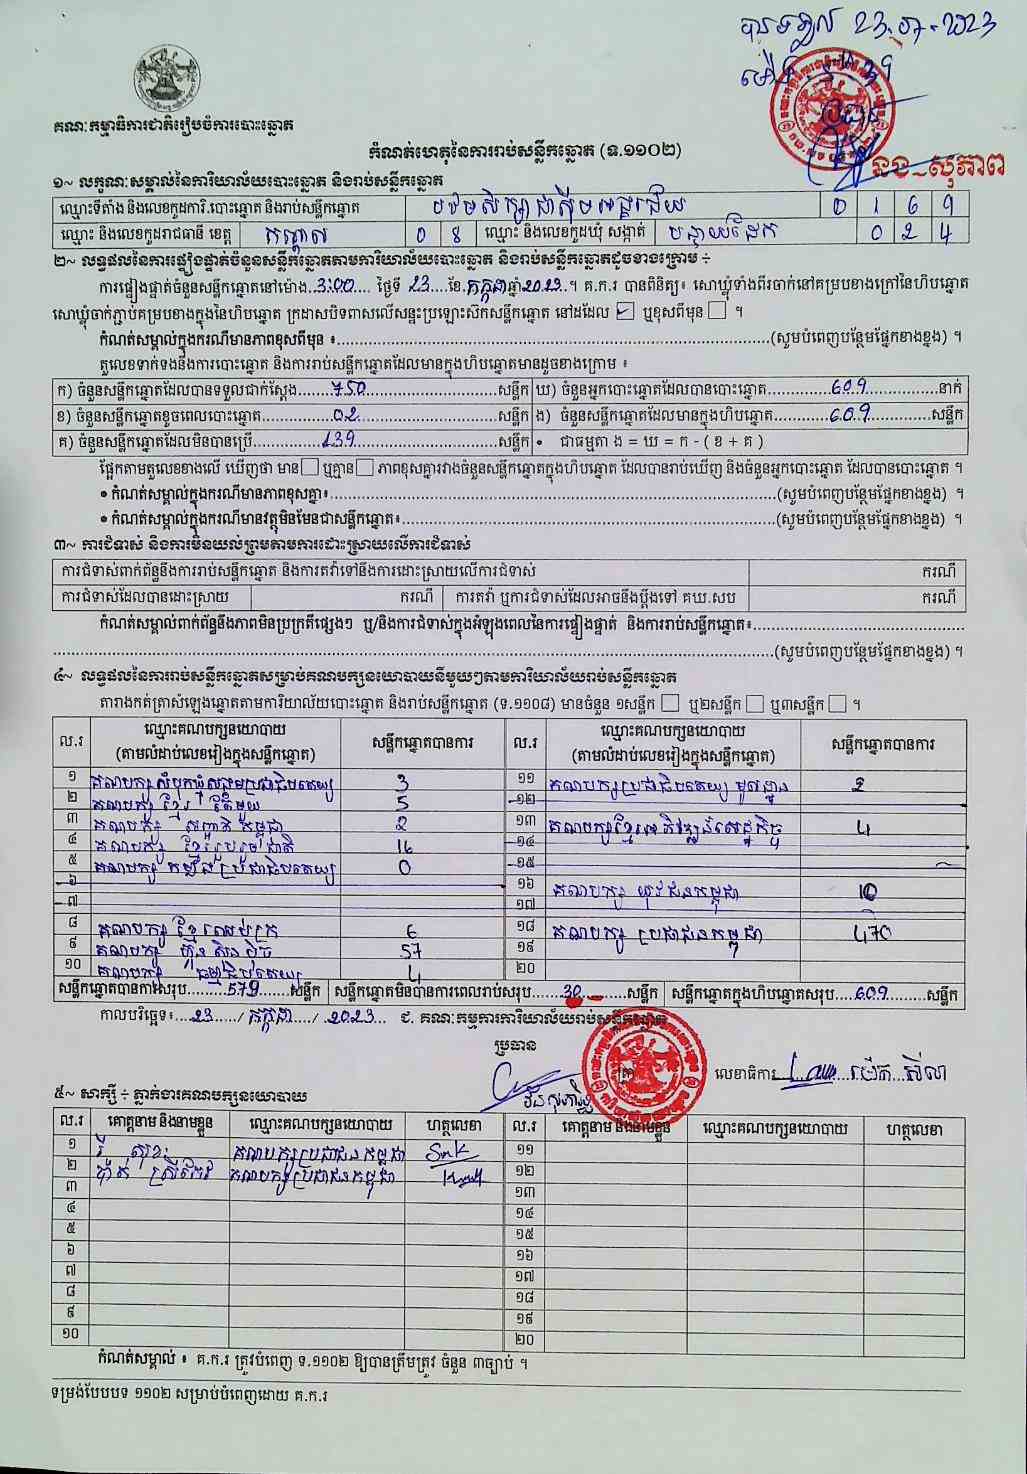 បានទទួល 23.07.2023
ម៉ោង
គណៈកម្មាធិការជាតិរៀបចំការបោះឆ្នោត
នង ~ សុភាព
កំណត់ហេតុនៃការរាប់សន្លឹកឆ្នោត (ទ.១១០២)
១~ លក្ខណៈសម្គាល់នៃការិយាល័យបោះឆ្នោត និងរាប់សន្លឹកឆ្នោត
ឈ្មោះទីតាំង និងលេខកូដការិ.បោះឆ្នោត និងរាប់សន្លឹកឆ្នោត 0 1 6 9
ឈ្មោះ និងលេខកូដរាជធានី ខេត្ត កណ្តាល 0 8 ឈ្មោះ និងលេខកូដឃុំ សង្កាត់ បន្ទាយដែក 0 2 4
២~ លទ្ធផលនៃការផ្ទៀងផ្ទាត់ចំនួនសន្លឹកឆ្នោតតាមការិយាល័យបោះឆ្នោត និងរាប់សន្លឹកឆ្នោតដូចខាងក្រោម ÷
ការផ្ទៀងផ្ទាត់ចំនួនសន្លឹកឆ្នោតនៅម៉ោង..3:00.... ថ្ងៃទី ..23....ខែ.កក្កដា.ឆ្នាំ2023..។ គ.ក.រ បានពិនិត្យ៖ សោឃ្លុំទាំងពីរចាក់នៅគម្របខាងក្រៅនៃហិបឆ្នោត
សោឃ្លុំចាក់ភ្ជាប់គម្របខាងក្នុងនៃហិបឆ្នោត ក្រដាសបិទពាសលើសន្ទះប្រឡោះស៊កសន្លឹកឆ្នោត នៅដដែល ☑ ឬខុសពីមុន ☐ ។
កំណត់សម្គាល់ក្នុងករណីមានភាពខុសពីមុន ៖..........(សូមបំពេញបន្ថែមផ្នែកខាងខ្នង) ។
តួលេខទាក់ទងនឹងការបោះឆ្នោត និងការរាប់សន្លឹកឆ្នោតដែលមានក្នុងហិបឆ្នោតមានដូចខាងក្រោម ៖
ក) ចំនួនសន្លឹកឆ្នោតដែលបានទទួលជាក់ស្តែង......750......សន្លឹក ឃ) ចំនួនអ្នកបោះឆ្នោតដែលបានបោះឆ្នោត......609......នាក់
ខ) ចំនួនសន្លឹកឆ្នោតខូចពេលបោះឆ្នោត......02......សន្លឹក ង) ចំនួនសន្លឹកឆ្នោតដែលមានក្នុងហិបឆ្នោត......609......សន្លឹក
គ) ចំនួនសន្លឹកឆ្នោតដែលមិនបានប្រើ......139......សន្លឹក • ជាធម្មតា ង = ឃ = ក - ( ខ + គ )
ផ្អែកតាមតួលេខខាងលើ ឃើញថា មាន ☐ ឬគ្មាន ☐ ភាពខុសគ្នារវាងចំនួនសន្លឹកឆ្នោតក្នុងហិបឆ្នោត ដែលបានរាប់ឃើញ និងចំនួនអ្នកបោះឆ្នោត ដែលបានបោះឆ្នោត ។
• កំណត់សម្គាល់ក្នុងករណីមានភាពខុសគ្នា៖..........(សូមបំពេញបន្ថែមផ្នែកខាងខ្នង) ។
• កំណត់សម្គាល់ក្នុងករណីមានវត្ថុមិនមែនជាសន្លឹកឆ្នោត៖..........(សូមបំពេញបន្ថែមផ្នែកខាងខ្នង) ។
៣~ ការជំទាស់ និងការមិនយល់ព្រមតាមការដោះស្រាយលើការជំទាស់
ការជំទាស់ពាក់ព័ន្ធនឹងការរាប់សន្លឹកឆ្នោត និងការតវ៉ាទៅនឹងការដោះស្រាយលើការជំទាស់ ករណី
ការជំទាស់ដែលបានដោះស្រាយ ករណី ការតវ៉ា ឬការជំទាស់ដែលអាចនឹងប្តឹងទៅ គឃ.សប ករណី
កំណត់សម្គាល់ពាក់ព័ន្ធនឹងភាពមិនប្រក្រតីផ្សេងៗ ឬ/និងការជំទាស់ក្នុងអំឡុងពេលនៃការផ្ទៀងផ្ទាត់ និងការរាប់សន្លឹកឆ្នោត៖..........
..........(សូមបំពេញបន្ថែមផ្នែកខាងខ្នង) ។
៤~ លទ្ធផលនៃការរាប់សន្លឹកឆ្នោតសម្រាប់គណបក្សនយោបាយនីមួយៗតាមការិយាល័យរាប់សន្លឹកឆ្នោត
តារាងកត់ត្រាសំឡេងឆ្នោតតាមការិយាល័យបោះឆ្នោត និងរាប់សន្លឹកឆ្នោត (ទ.១១០៨) មានចំនួន ១សន្លឹក ☐ ឬ២សន្លឹក ☐ ឬ៣សន្លឹក ☐ ។
ល.រ ឈ្មោះគណបក្សនយោបាយ (តាមលំដាប់លេខរៀងក្នុងសន្លឹកឆ្នោត) សន្លឹកឆ្នោតបានការ ល.រ ឈ្មោះគណបក្សនយោបាយ (តាមលំដាប់លេខរៀងក្នុងសន្លឹកឆ្នោត) សន្លឹកឆ្នោតបានការ
១ គណបក្ស សំបុកឃ្មុំសង្គមប្រជាធិបតេយ្យ 3 ១១ គណបក្សប្រជាធិបតេយ្យ មូលដ្ឋាន 2
២ គណបក្ស ខ្មែរ តែមួយ 5 ១២
៣ គណបក្ស សញ្ជាតិ កម្ពុជា 2 ១៣ គណបក្សខ្មែរអភិវឌ្ឍន៍សេដ្ឋកិច្ច 4
៤ គណបក្ស ខ្មែររួបរួមជាតិ 16 ១៤
៥ គណបក្ស កម្លាំងប្រជាធិបតេយ្យ 0 ១៥
៦ ១៦ គណបក្ស យុវជនកម្ពុជា 10
៧ ១៧
៨ គណបក្ស ខ្មែរឈប់ក្រ 6 ១៨ គណបក្ស ប្រជាជនកម្ពុជា 470
៩ គណបក្ស ហ៊្វុនស៊ិនប៉ិច 57 ១៩
១០ គណបក្ស ធម្មាធិបតេយ្យ 4 ២០
សន្លឹកឆ្នោតបានការសរុប......579......សន្លឹក សន្លឹកឆ្នោតមិនបានការពេលរាប់សរុប......30......សន្លឹក សន្លឹកឆ្នោតក្នុងហិបឆ្នោតសរុប....609......សន្លឹក
កាលបរិច្ឆេទ៖...23...../ កក្កដា..../ 2023.... ជ. គណៈកម្មការការិយាល័យរាប់សន្លឹកឆ្នោត
ប្រធាន
លេខាធិការ
៥~ សាក្សី ÷ ភ្នាក់ងារគណបក្សនយោបាយ
ល.រ គោត្តនាម និងនាមខ្លួន ឈ្មោះគណបក្សនយោបាយ ហត្ថលេខា ល.រ គោត្តនាម និងនាមខ្លួន ឈ្មោះគណបក្សនយោបាយ ហត្ថលេខា
១ រី សុខៈ គណបក្សប្រជាជនកម្ពុជា ១១
២ ស្រីកែវ គណបក្សប្រជាជនកម្ពុជា ១២
៣ ១៣
៤ ១៤
៥ ១៥
៦ ១៦
៧ ១៧
៨ ១៨
៩ ១៩
១០ ២០
កំណត់សម្គាល់ ៖ គ.ក.រ ត្រូវបំពេញ ទ.១១០២ ឱ្យបានត្រឹមត្រូវ ចំនួន ៣ច្បាប់ ។
ទម្រង់បែបបទ ១១០២ សម្រាប់បំពេញដោយ គ.ក.រ